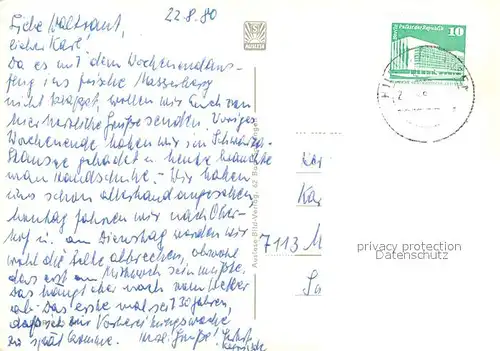 22.8.80
Liebe Waltraut,
lieber Karl!
Da es mit dem Wochenendaus-
flug ins frische Masserberg
nicht klappt wollen wir Euch von
hier herzliche Grüße senden. Voriges
Wochenende haben wir im Schwarza-
gebadet u. heute brauchte
man Handschuhe. - Wir haben
uns schon allerhand angesehen.
Montag fahren wir nach Ober-
hof u. am Dienstag werden wir
wohl die abbrechen, obwohl
das erst am Mittwoch sein müßte.
Das hängt aber noch vom Wetter
ab. Das erste mal seit 30 Jahren,
daß ich zur Vorbereitungswoche
zu spät komme. Grüße!
AUSLESE
Auslese-Bild-Verlag, 62 Bad
Deutsche Demokratische Republik
10
7113 M
privacy protection
Datenschutz